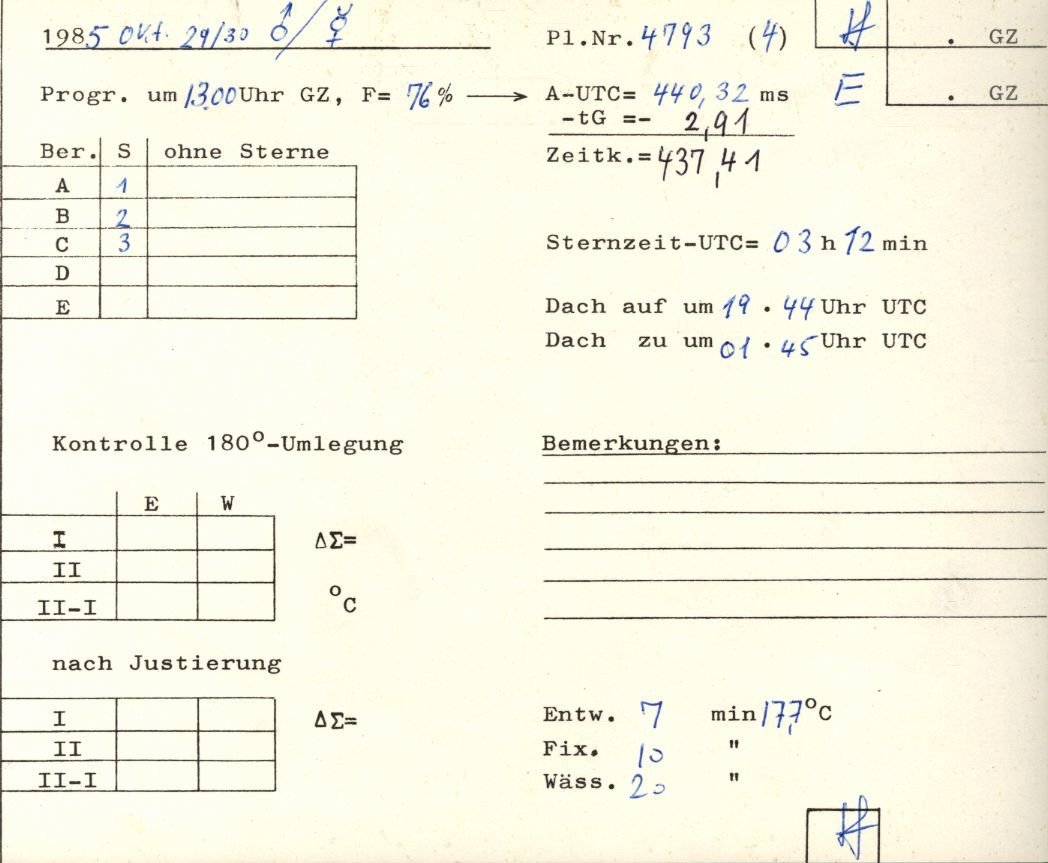 1985 Okt. 29/30 ♂/☿
Pl.Nr. 4793 (4)
. GZ
Progr. um 13.00 Uhr GZ, F= 76% → A-UTC= 440,32 ms
E . GZ
-tG =- 2,91
Zeitk.= 437,41
Ber. S ohne Sterne
A 1
B 2
C 3
D
E
Sternzeit-UTC= 03 h 12 min
Dach auf um 19 . 44 Uhr UTC
Dach zu um 01 . 45 Uhr UTC
Kontrolle 180°-Umlegung
E W
I ΔΣ=
II
II-I °C
Bemerkungen:
nach Justierung
I ΔΣ=
II
II-I
Entw. 7 min 17,7 °C
Fix. 10 "
Wäss. 20 "